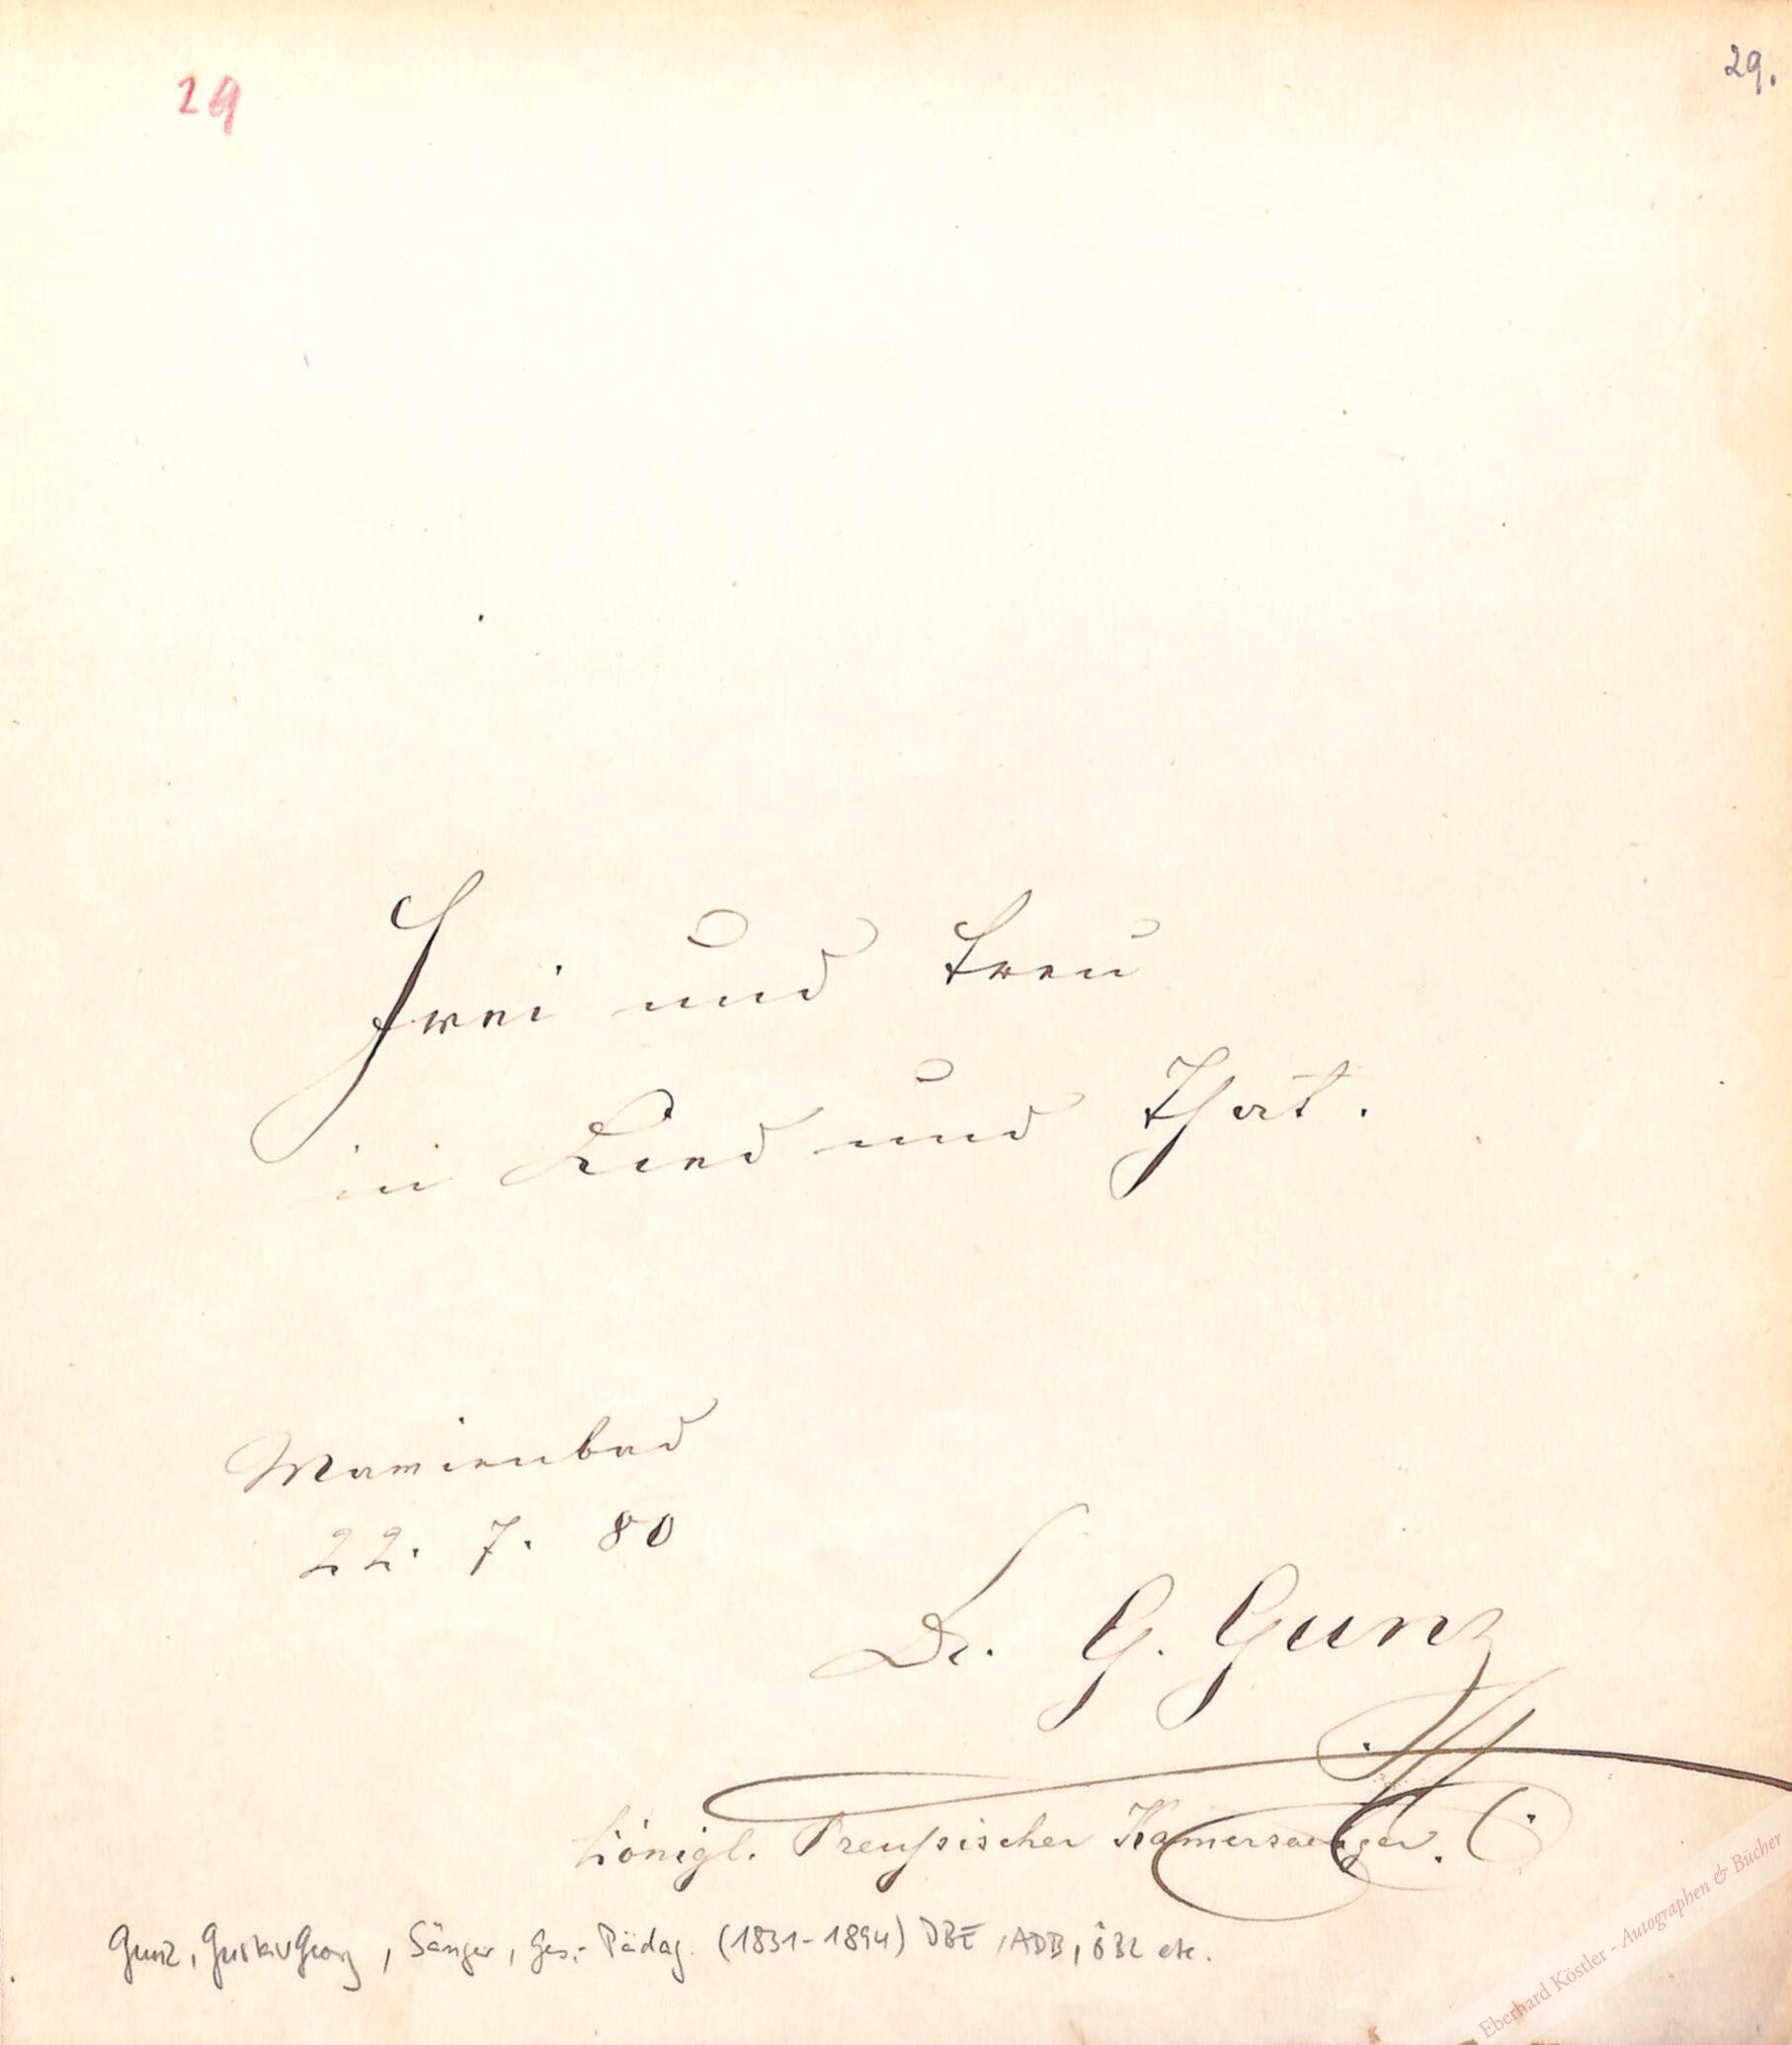 29
29.
Frei und treu
in Lied und That.
Marienbad
22. 7. 80
Dr. G. Gunz
Königl. Preußischer Kamersaenger.
Gunz, Gustav Georg, Sänger, Ges.-Pädag. (1831-1894) DBE, ADB, ÖBL etc.
Eberhard Köstler - Autographen & Bücher